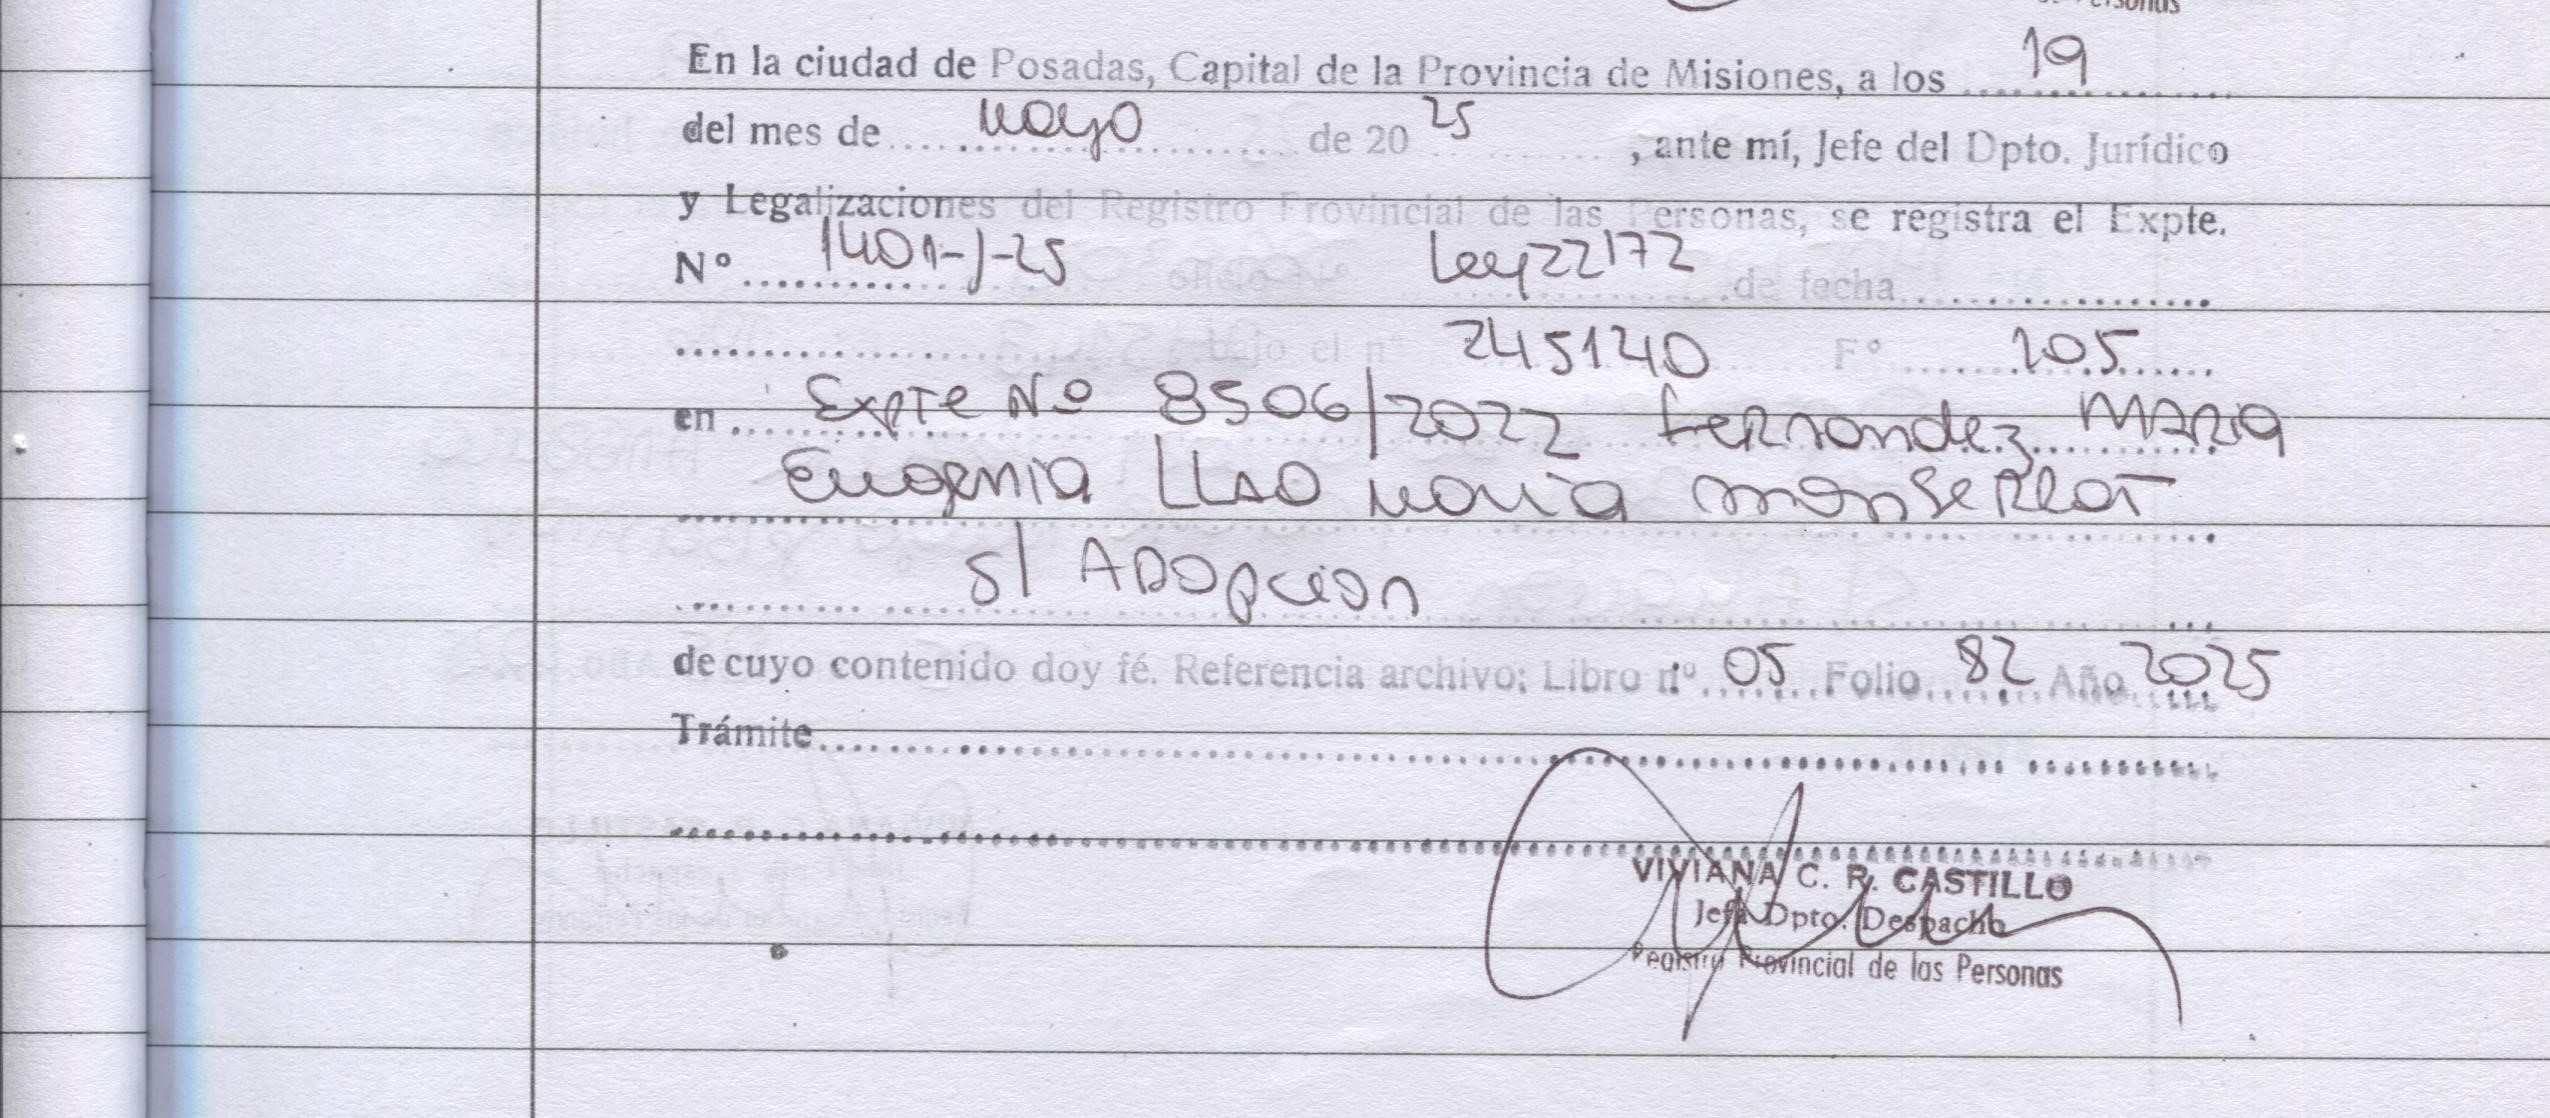 de Personas
En la ciudad de Posadas, Capital de la Provincia de Misiones, a los 19
del mes de mayo de 2025, ante mí, Jefe del Dpto. Jurídico
y Legalizaciones del Registro Provincial de las Personas, se registra el Expte.
Nº 1401-J-25 Ley 22172 de fecha
bajo el nº 245140 Fº 205
en Expte Nº 8506/2022 Fernandez Maria
Eugenia LLAO Maria Monserrat
s/ Adopcion
de cuyo contenido doy fé. Referencia archivo: Libro nº 05 Folio 82 Año 2025
Trámite
VIVIANA C. R. CASTILLO
Jefa Dpto. Despacho
Registro Provincial de las Personas